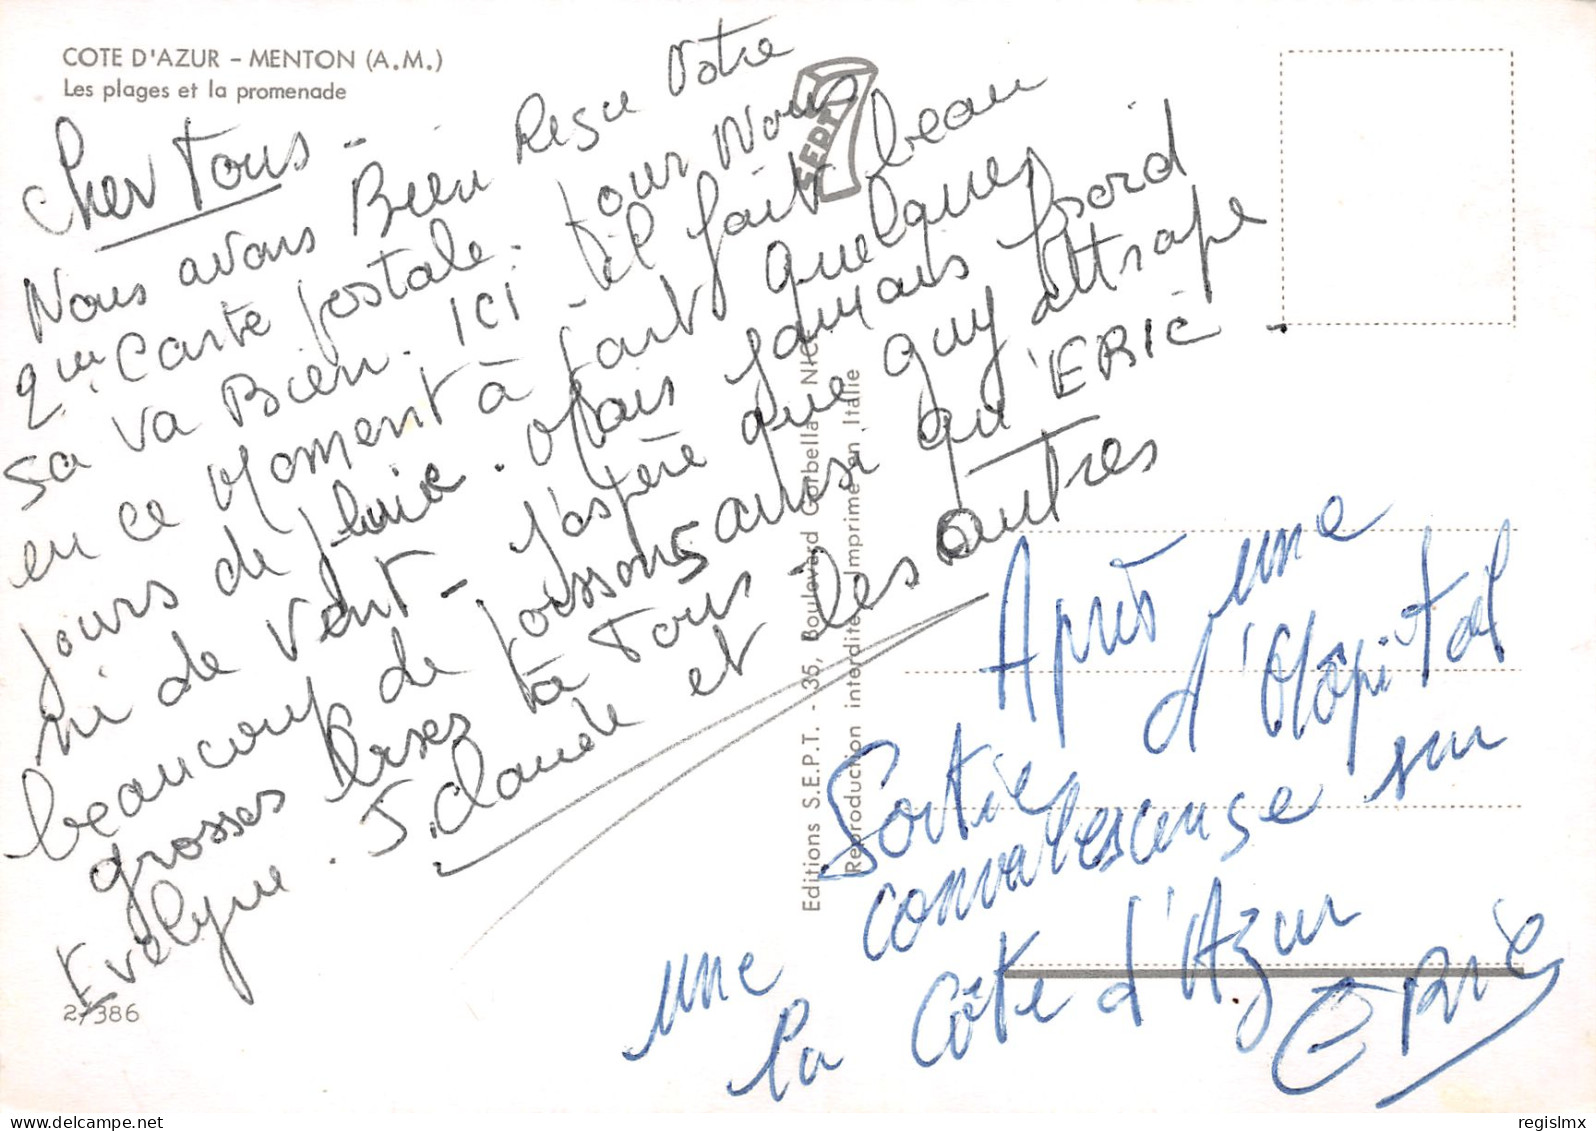 COTE D'AZUR - MENTON (A.M.)
Les plages et la promenade
Cher Tous -
Nous avons Bien Resu Votre
Carte postale. pour Nous
sa va Bien. ICI - il fait beau
en ce Moment à part quelques
jours de pluie. Mais jamais froid
ni de vent - J'espère que guy attrape
beaucoup de poissons ainsi qu'ERIC -
grosses bises à Tous
Evelyne. J. Claude et les autres
2/386
SEPT
7
Editions S.E.P.T. - 35, Boulevard Gorbella NICE
Reproduction interdite Imprimé en Italie
Après une
Sortie d'Hôpital
une convalescense sur
la Côte d'Azur
ERIC
regislmx